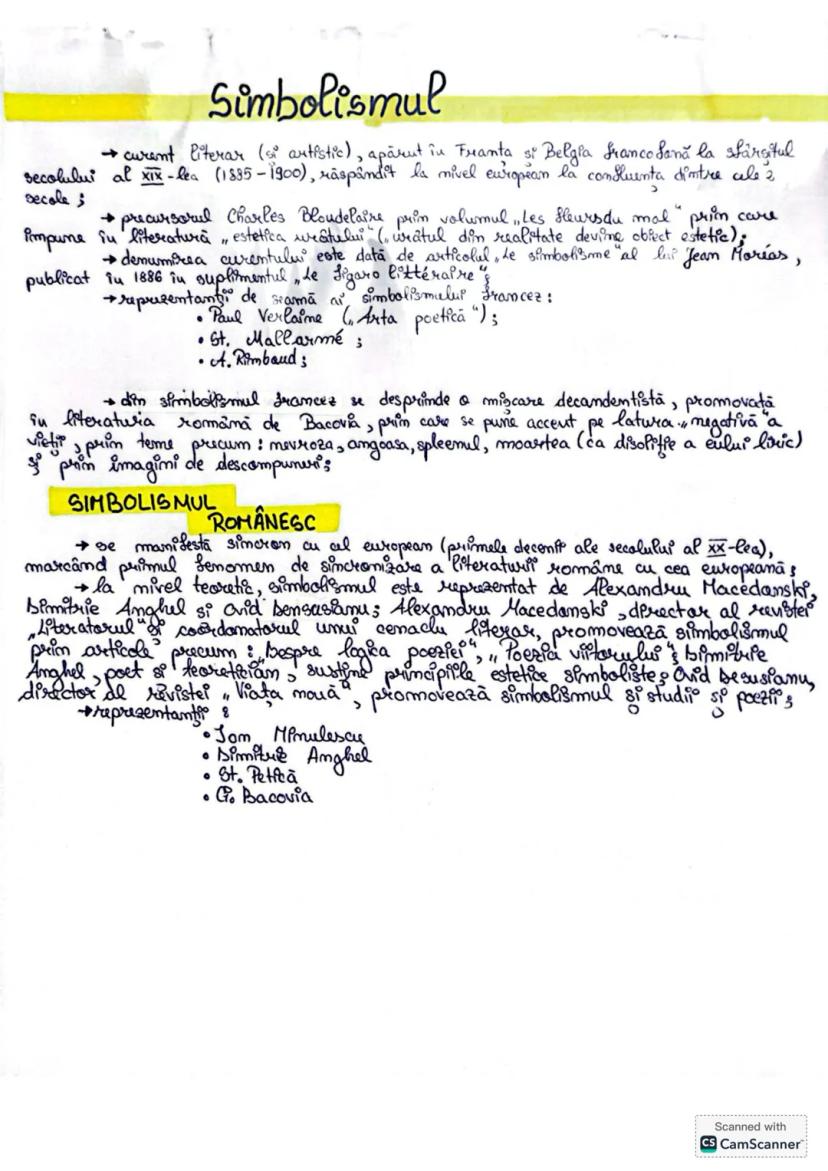 Simbolismul
→ curent literar (și artistic), apărut în Franta și Belgia francofonă la sfârșitul
secolului al XIX-lea (1885-1900), răspândit la nivel european la confluența dintre cele 2
secole ;
→ precursorul Charles Bloudelaire prin volumul „Les fleursdu mal" prin care
impune în literatură „estetica urâtului" („urâtul din realitate devine obiect estetic);
→ denumirea curentului este dată de articolul „Le simbolisme" al lui Jean Moréas,
publicat în 1886 în suplimentul „Le figaro littéraire";
→ reprezentanții de seamă ai simbolismului francez:
• Paul Verlaine („Arta poetică");
• St. Mallarmé ;
• A. Rimbaud ;
→ din simbolismul francez se desprinde o mișcare decandentistă, promovată
în literatura română de Bacovia, prin care se pune accent pe latura „negativă" a
vieții, prin teme precum: nevroza, angoasa, spleenul, moartea (ca disoliție a eului liric)
și prin imagini de descompuneri;
SIMBOLISMUL
ROMÂNESC
→ se manifestă sincron cu cel european (primele decenii ale secolului al XX-lea),
marcând primul fenomen de sincronizare a literaturii române cu cea europeană;
→ la nivel teoretic, simbolismul este reprezentat de Alexandru Macedonski,
Dimitrie Anghel și Ovid Densusianu; Alexandru Macedonski, director al revistei
„Literatorul" și coordonatorul unui cenaclu literar, promovează simbolismul
prin articole precum: „Despre logica poeziei", „Poezia viitorului"; Dimitrie
Anghel, poet si teoretician, susține principiile estetice simboliste; Ovid Desusianu,
director al revistei „Viața nouă", promovează simbolismul și studii și poezii;
→ reprezentanții :
• Ion Minulescu
• Dimitrie Anghel
• St. Petică
• G. Bacovia
Scanned with
CS CamScanner